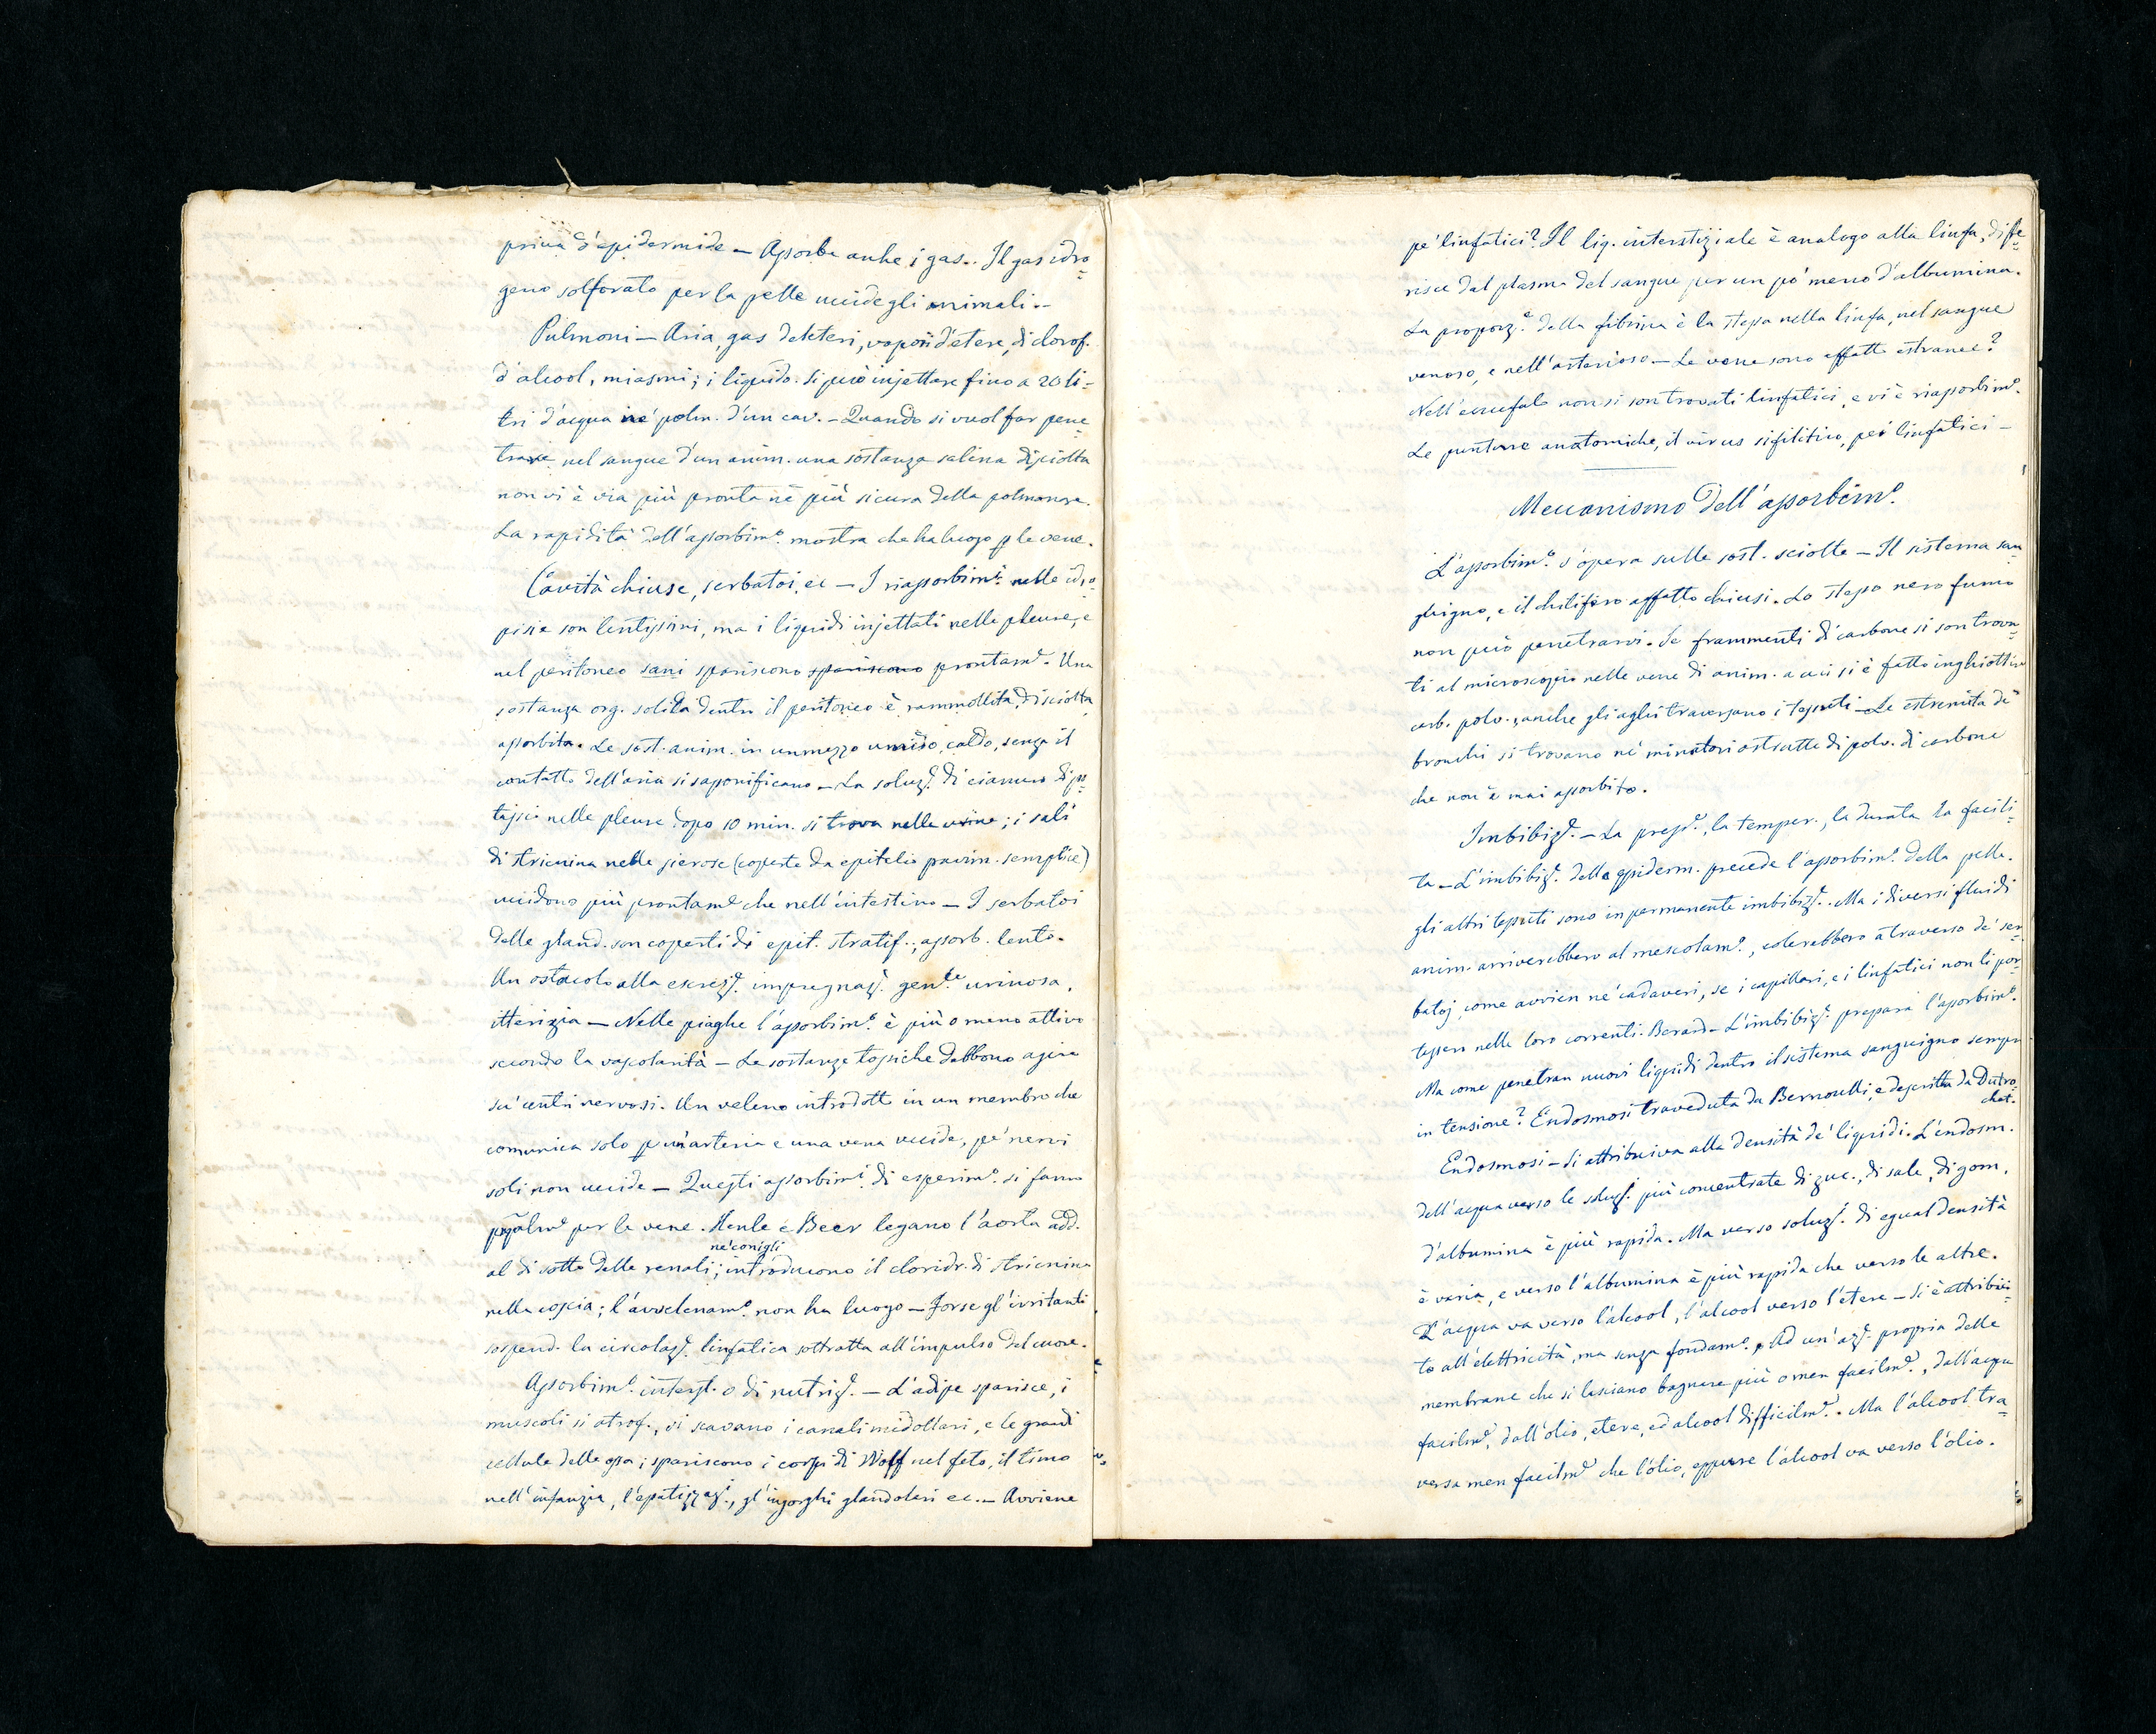 priva d'epidermide — Assorbe anche i gas. Il gas idro=
geno solforato per la pelle uccide gli animali. —
Pulmoni — Aria, gas deleteri, vapori d'etere, di clorof.
d'alcool, miasmi; i liquidi. Si può injettare fino a 20 li-
tri d'acqua ne' polm. d'un cav. — Quando si vuol far pene=
trare nel sangue d'un anim. una sostanza salina disciolta
non vi è via più pronta nè più sicura della polmonare.
La rapidità dell'assorbim.º mostra che ha luogo p le vene.
Cavità chiuse, serbatoi, ec — I riassorbim.i nelle idro=
pisie son lentissimi, ma i liquidi injettati nelle pleure, e
nel peritoneo sani spariscono spariscono prontam.e. Una
sostanza org. solida dentro il peritoneo è rammollita, disciolta,
assorbita. Le sost. anim. in un mezzo umido, caldo, senza il
contatto dell'aria si saponificano — La soluz.e di cianuro di po=
tassio nelle pleure dopo 10 min. si trova nelle urine; i sali
di stricnina nelle sierose (coperte da epitelio pavim. semplice)
uccidono più prontam.e che nell'intestino — I serbatoi
delle gland. son coperti di epit. stratif.; assorb. lento.
Un ostacolo alla escrez.e impregnaz.e gen.le urinosa,
itterizia — Nelle piaghe l'assorbim.º è più o meno attivo
secondo la vascolarità — Le sostanze tossiche debbono agire
su' centri nervosi. Un veleno introdotto in un membro che
comunica solo p un'arteria e una vena uccide, pe' nervi
soli non uccide — Questi assorbim.i di esperim.º si fanno
ppalm.e per le vene. Henle e Beer legano l'aorta add.
al di sotto delle renali; ne' conigli introducono il cloridr. di stricnina
nella coscia; l'avvelenam.º non ha luogo — Forse gl'irritanti
sospend. la circolaz.e linfatica sottratta all'impulso del cuore.
Assorbim.º interst. o di nutriz.e — L'adipe sparisce, i
muscoli si atrof., si scavano i canali midollari, e le grandi
cellule delle ossa; spariscono i corpi di Wolff nel feto, il timo
nell'infanzia, l'epatizzaz.e, gl'ingorghi glandolari ec. — Avviene
pe' linfatici? Il liq. interstiziale è analogo alla linfa, diffe=
risce dal plasma del sangue per un po' meno d'albumina.
La proporz.e della fibrina è la stessa nella linfa, nel sangue
venoso, e nell'arterioso. — Le vene sono affatto estranee?
Nell'encefalo non si son trovati linfatici, e vi è riassorbim.º
Le punture anatomiche, il virus sifilitico, pe' linfatici —
Meccanismo dell'assorbim.º
L'assorbim.º s'opera sulle sost. sciolte — Il sistema san
guigno, e il chilifero affatto chiusi. Lo stesso nero fumo
non può penetrarvi. Se frammenti di carbone si son trova=
ti al microscopio nelle vene di anim. a cui si è fatto inghiottire
carb. polv., anche gli aghi traversano i tessuti — Le estremità de'
bronchi si trovano ne' minatori ostrutte di polv. di carbone
che non è mai assorbito.
Imbibiz.e — La press.e, la temper., la durata la facili=
ta — L'imbibiz.e della epiderm. precede l'assorbim.º della pelle.
gli altri tessuti sono in permanente imbibiz.e. Ma i diversi fluidi
anim. arriverebbero al mescolam.º, colerebbero atraverso de' ser=
batoj come avvien ne' cadaveri, se i capillari, e i linfatici non li por=
tassero nelle loro correnti. Berard — L'imbibiz.e prepara l'assorbim.º.
Ma come penetran nuovi liquidi dentro il sistema sanguigno sempre
in tensione? Endosmosi traveduta da Bernoulli, e descritta da Dutro=
chet.
Endosmosi — Si attribuiva alla densità de' liquidi. L'endosm.
dell'acqua verso le soluz.i più concentrate di zuc., di sale, di gom.
d'albumina è più rapida. Ma verso soluz.i di egual densità
è varia, e verso l'albumina è più rapida che verso le altre.
L'acqua va verso l'alcool, l'alcool verso l'etere — Si è attribui=
to all'elettricità, ma senza fondam.º. Ad un'az.e propria delle
membrane che si lasciano bagnare più o men facilm.e, dall'acqua
facilm.e, dall'olio, etere, ed alcool difficilm.e. Ma l'alcool tra=
versa men facilm.e che l'olio, eppure l'alcool va verso l'olio.